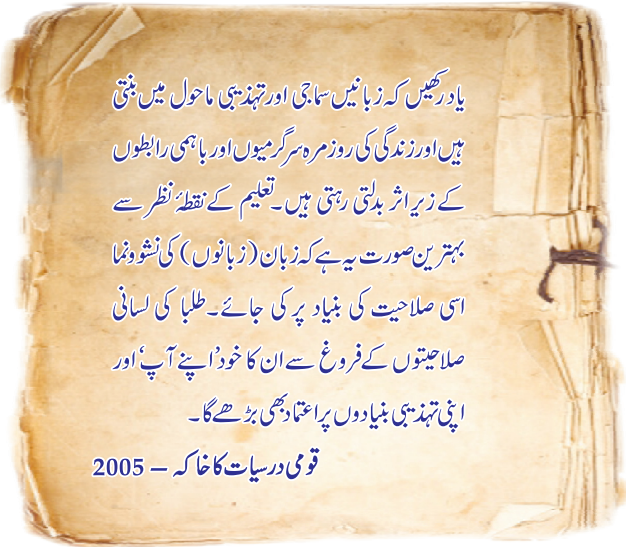 یاد رکھیں کہ زبانیں سماجی اور تہذیبی ماحول میں بنتی
ہیں اور زندگی کی روزمرہ سرگرمیوں اور باہمی رابطوں
کے زیر اثر بدلتی رہتی ہیں۔ تعلیم کے نقطۂ نظر سے
بہترین صورت یہ ہے کہ زبان (زبانوں) کی نشوونما
اسی صلاحیت کی بنیاد پر کی جائے۔ طلبا کی لسانی
صلاحیتوں کے فروغ سے ان کا خود ’اپنے آپ‘ اور
اپنی تہذیبی بنیادوں پر اعتماد بھی بڑھے گا۔
قومی درسیات کا خاکہ – 2005